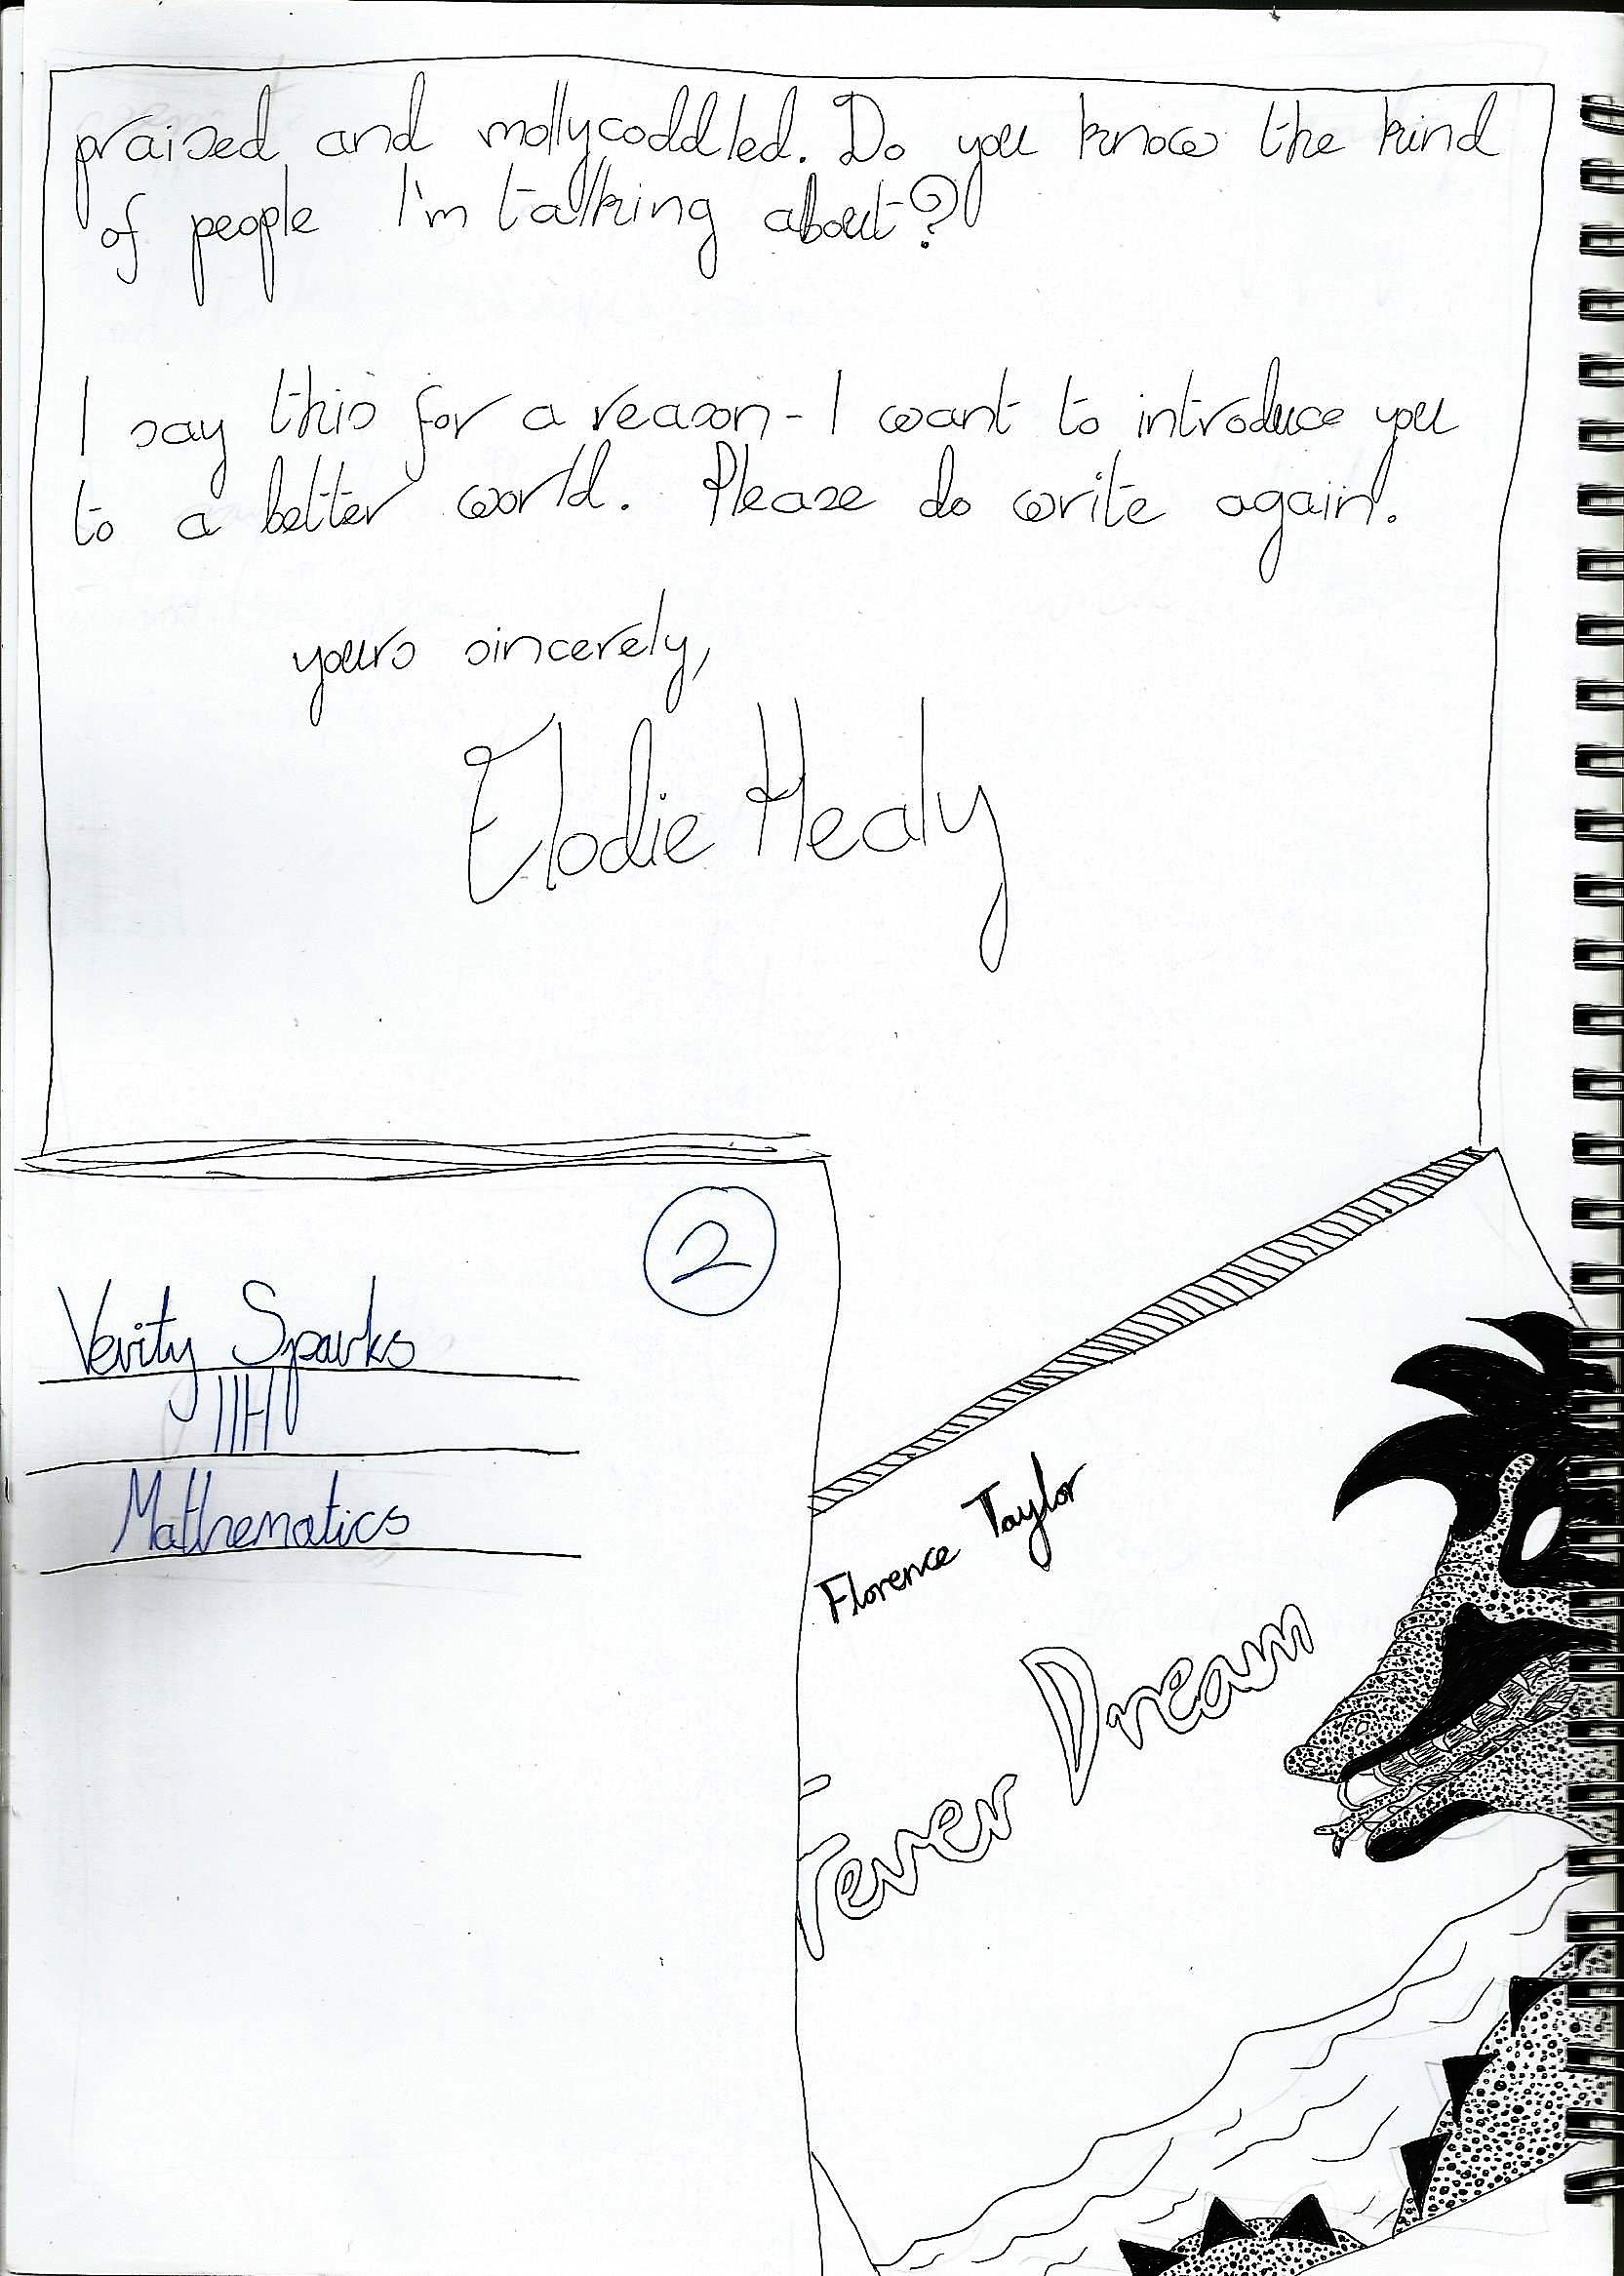 praised and mollycoddled. Do you know the kind
of people I'm talking about?
I say this for a reason - I want to introduce you
to a better world. Please do write again.
yours sincerely,
Elodie Healy
2
Verity Sparks
11H
Mathematics
Florence Taylor
Fever Dream